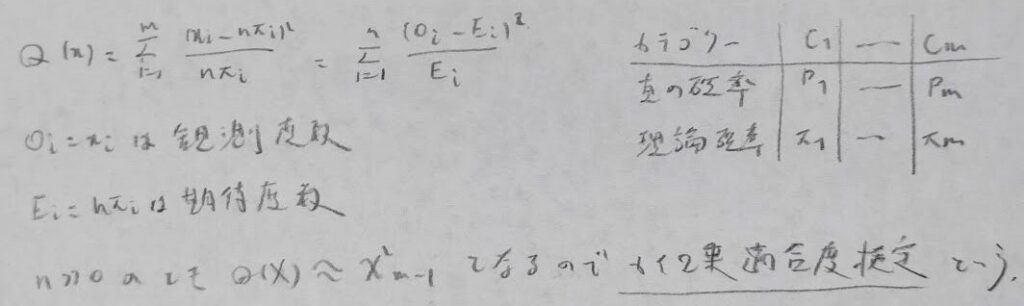 Q(x) = Σ_{i=1}^{m} (x_i - nπ_i)² / nπ_i = Σ_{i=1}^{n} (O_i - E_i)² / E_i
O_i = x_i は 観測度数
E_i = nπ_i は期待度数
カテゴリー | C_1 | — | C_m
真の確率 | P_1 | — | P_m
理論確率 | π_1 | — | π_m
n≫0 のとき Q(X) ~ χ²_{m-1} となるので カイ2乗適合度検定 という.